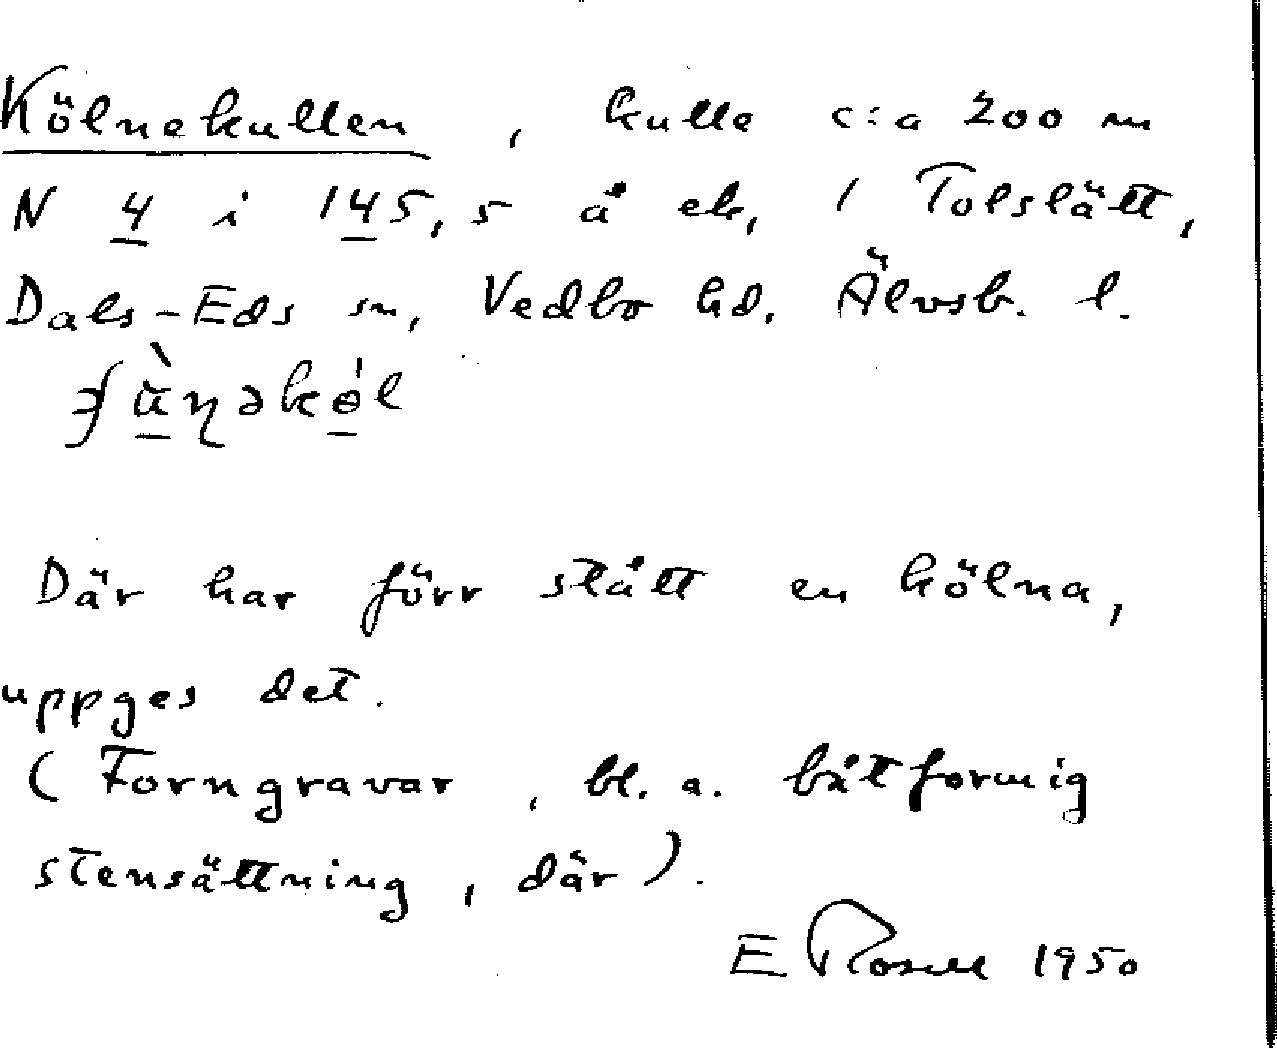 Kölnekullen, kulle c:a 200 m
N 4 i 145, 5 å ek, 1 Tolslätt,
Dals-Eds sn, Vedbo hd. Älvsb. l.
Där har förr stått en kölna,
uppges det.
(Forngravar, bl. a. båtformig
stensättning, där).
E Rosell 1950